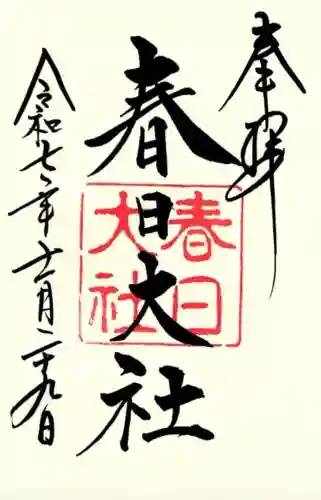 奉拝
春日大社
春日
大社
令和七年十一月二十九日